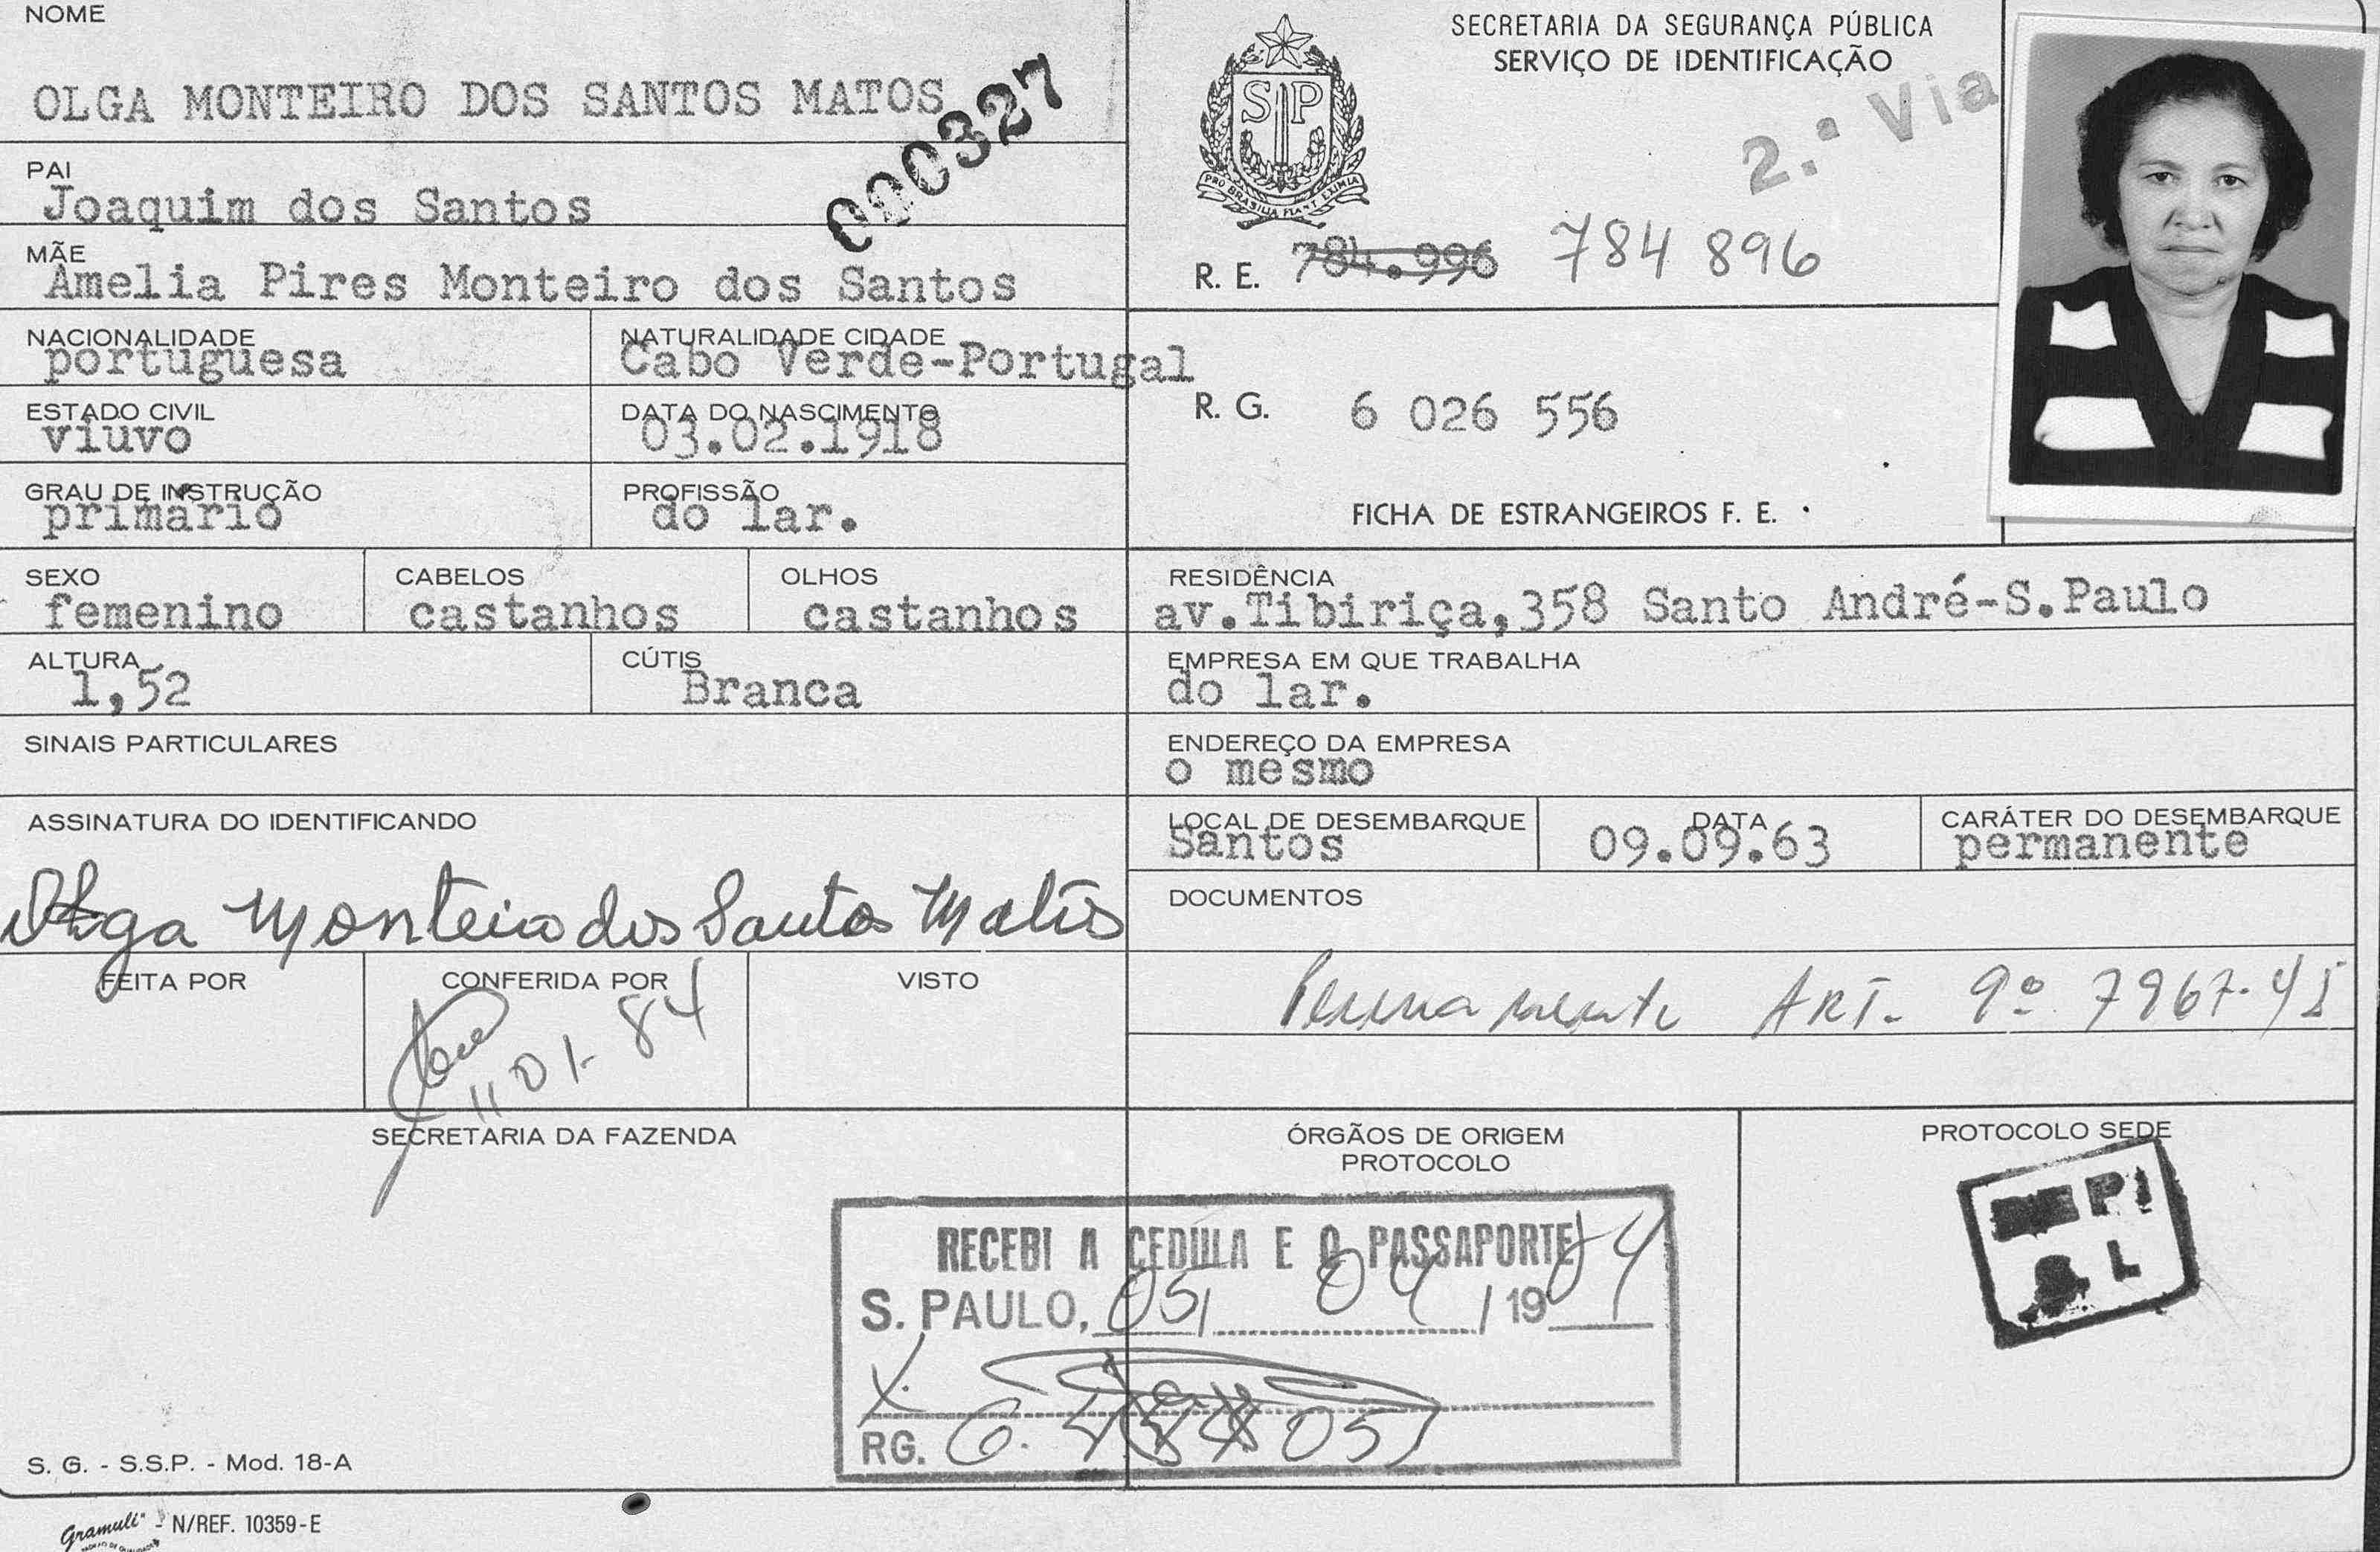 NOME
OLGA MONTEIRO DOS SANTOS MATOS
000327
PAI
Joaquim dos Santos
MÃE
Amelia Pires Monteiro dos Santos
NACIONALIDADE
portuguesa
NATURALIDADE CIDADE
Cabo Verde-Portugal
ESTADO CIVIL
viuvo
DATA DO NASCIMENTO
03.02.1918
GRAU DE INSTRUÇÃO
primário
PROFISSÃO
do lar.
SEXO
femenino
CABELOS
castanhos
OLHOS
castanhos
ALTURA
1,52
CÚTIS
Branca
SINAIS PARTICULARES
ASSINATURA DO IDENTIFICANDO
Olga Monteiro dos Santos Matos
FEITA POR
CONFERIDA POR
11 01-84
VISTO
SECRETARIA DA FAZENDA
S. G. - S.S.P. - Mod. 18-A
Gramuli - N/REF. 10359-E
SECRETARIA DA SEGURANÇA PÚBLICA
SERVIÇO DE IDENTIFICAÇÃO
2.ª Via
SP
PRO BRASILIA FIANT EXIMIA
R. E. 784.996 784 896
R. G. 6 026 556
FICHA DE ESTRANGEIROS F. E.
RESIDÊNCIA
av.Tibiriça,358 Santo André-S.Paulo
EMPRESA EM QUE TRABALHA
do lar.
ENDEREÇO DA EMPRESA
o mesmo
LOCAL DE DESEMBARQUE
Santos
DATA
09.09.63
CARÁTER DO DESEMBARQUE
permanente
DOCUMENTOS
Permanente ART. 9º 7967-45
ÓRGÃOS DE ORIGEM
PROTOCOLO
RECEBI A CEDULA E O PASSAPORTE
S. PAULO, 05/ 04 /1984
RG. 6.
PROTOCOLO SEDE